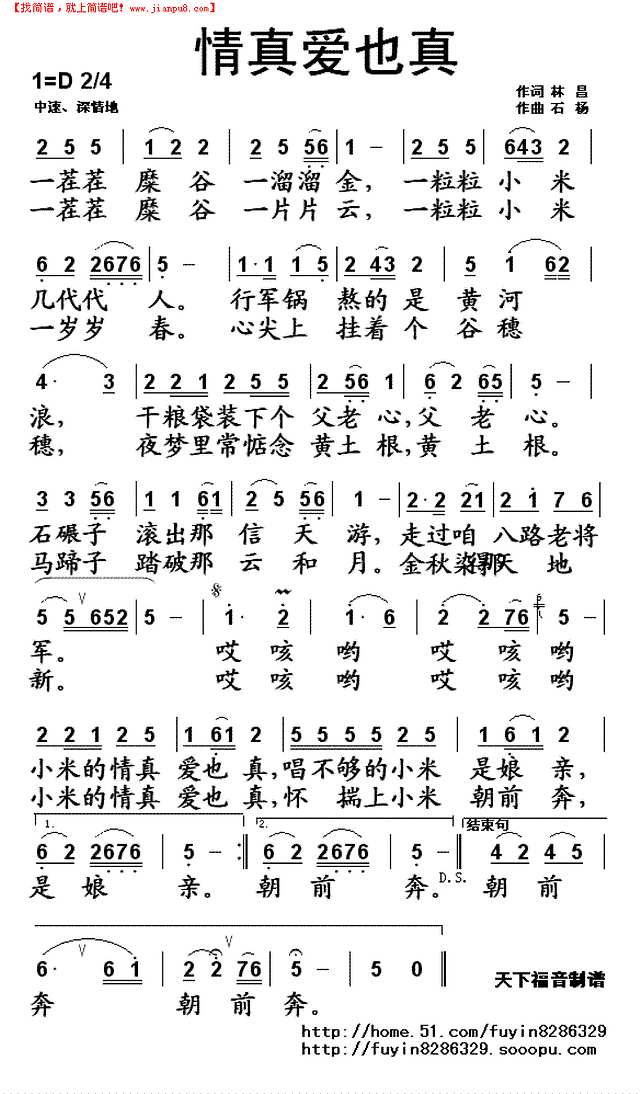 【找简谱，就上简谱吧！www.jianpu8.com】
情真爱也真
1=D 2/4
中速、深情地
作词 林 昌
作曲 石 杨
2 5 5 | 1 2 2 | 2 5 56 | 1 - | 2 5 5 | 643 2 |
一茬茬 糜 谷 一溜溜 金， 一粒粒 小 米
一茬茬 糜 谷 一片片 云， 一粒粒 小 米
6 2 2676 | 5 - | 1·1 1 5 | 2 43 2 | 5 1 62 |
几代代 人。 行军锅 熬的 是 黄 河
一岁岁 春。 心尖上 挂着 个 谷 穗
4· 3 | 2 2 1 2 5 2 | 2 56 1 | 6 2 65 | 5 - |
浪， 干粮袋装下个 父老 心，父 老 心。
穗， 夜梦里常惦念 黄土 根，黄 土 根。
3 3 56 | 1 1 61 | 2 5 56 | 1 - | 2·2 21 | 2 1 7 6 |
石碾子 滚出那 信 天 游，走过咱 八路老将
马蹄子 踏破那 云 和 月。金秋染得那天 地
5 5 652 | 5 - | 1· 2 | 1· 6 | 2 2 76 | 5 - |
军。 哎 咳 哟 哎 咳 哟
新。 哎 咳 哟 哎 咳 哟
2 2 2 2 5 | 1 61 2 | 5 5 5 5 2 5 | 1 6 1 2 |
小米的情真 爱也 真，唱不够的小米 是娘 亲，
小米的情真 爱也 真，怀 揣上小米 朝前 奔，
1. 2. 结束句
6 2 2676 | 5 - :‖ 6 2 2676 | 5 - ‖ 4 2 4 5 |
D.S.
是 娘 亲。 朝 前 奔。 朝 前
6· 6 1 | 2 2 76 | 5 - | 5 0 ‖
天下福音制谱
奔 朝 前 奔。
http://home.51.com/fuyin8286329
http://fuyin8286329.sooopu.com/